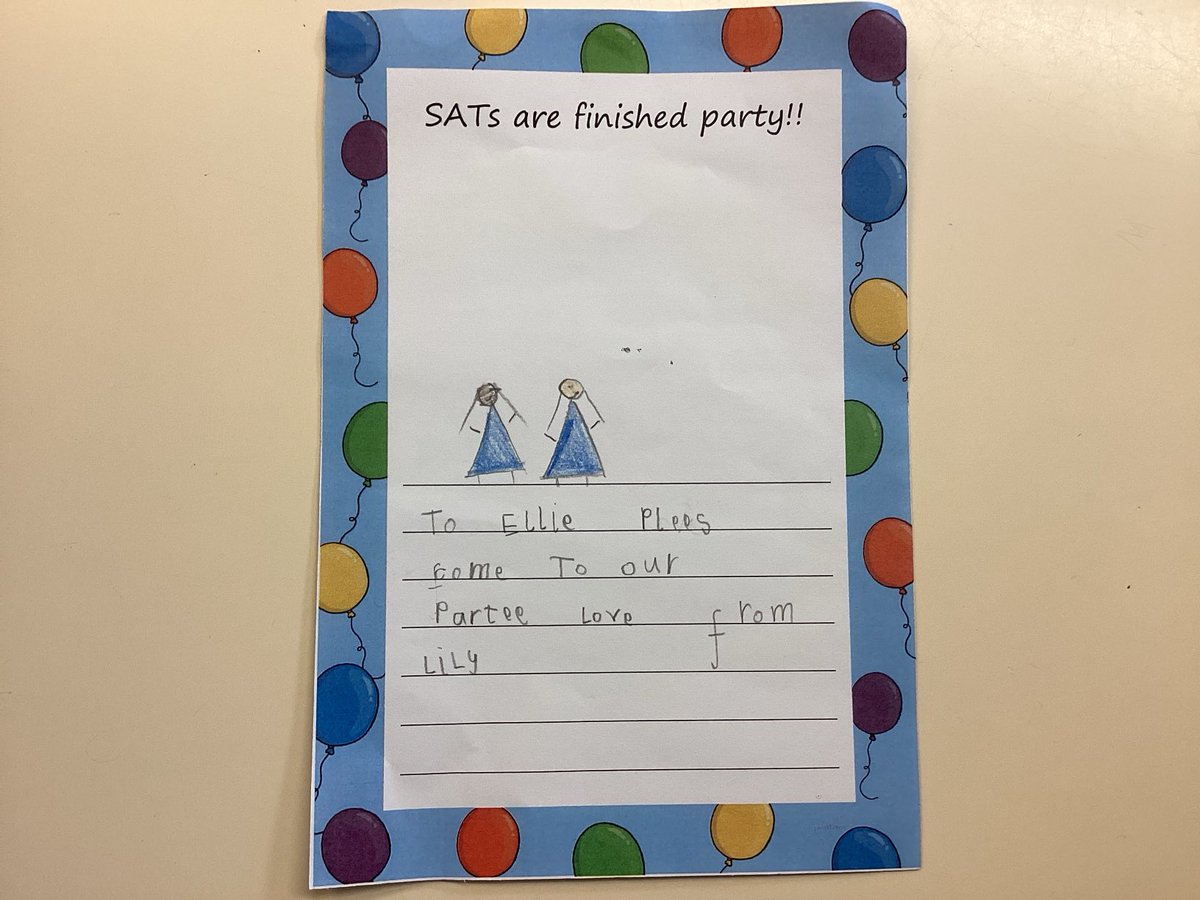 SATs are finished party!!
To Ellie Plees
come To our
Partee Love from
LiLy